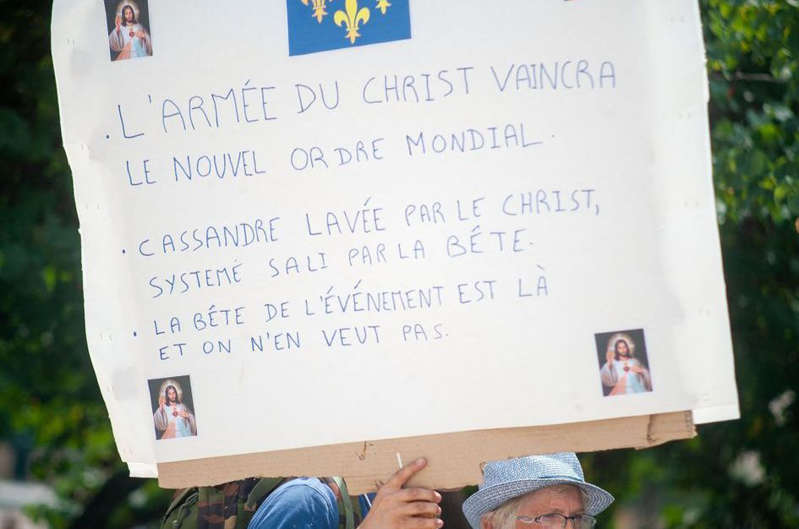 . L'ARMÉE DU CHRIST VAINCRA
LE NOUVEL ORDRE MONDIAL.
. CASSANDRE LAVÉE PAR LE CHRIST,
SYSTEMÉ SALI PAR LA BÉTE.
. LA BÉTE DE L'ÉVÉNEMENT EST LÀ
ET ON N'EN VEUT PAS.